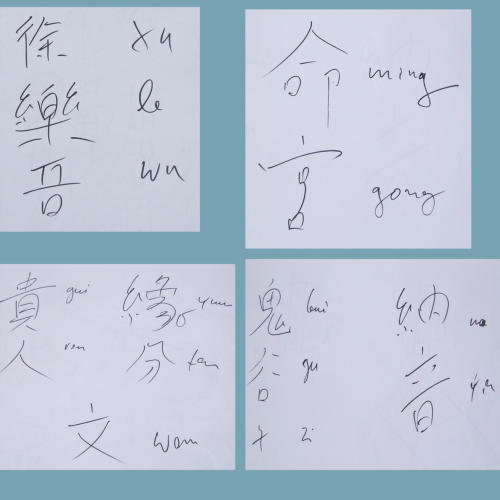 徐 xu
樂 le
吾 wu
命 ming
宫 gong
貴 gui 緣 yuan
人 ren 分 fen
文 wen
鬼 gui 納 na
谷 gu 音 yin
子 zi